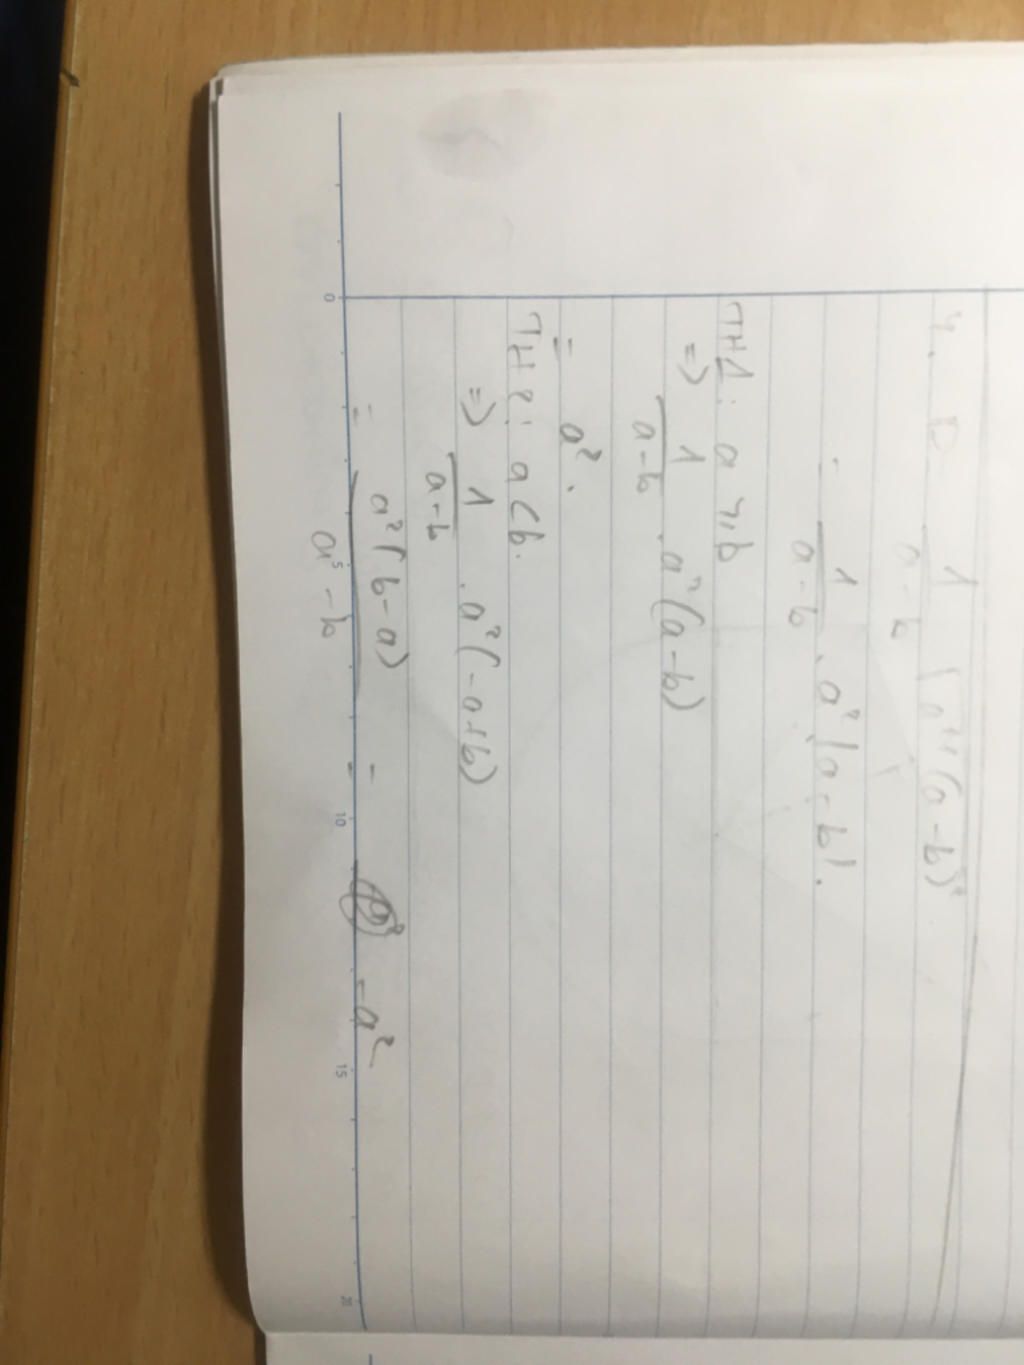 4. D = 1/(a-b) √(a⁴(a-b)²
= 1/(a-b) . a²|a-b|.
TH1: a ≥ b
=> 1/(a-b) . a²(a-b)
= a².
TH2: a < b.
=> 1/(a-b) . a²(-a+b)
= a²(b-a)/(a-b) = -a²
0 5 10 15 20